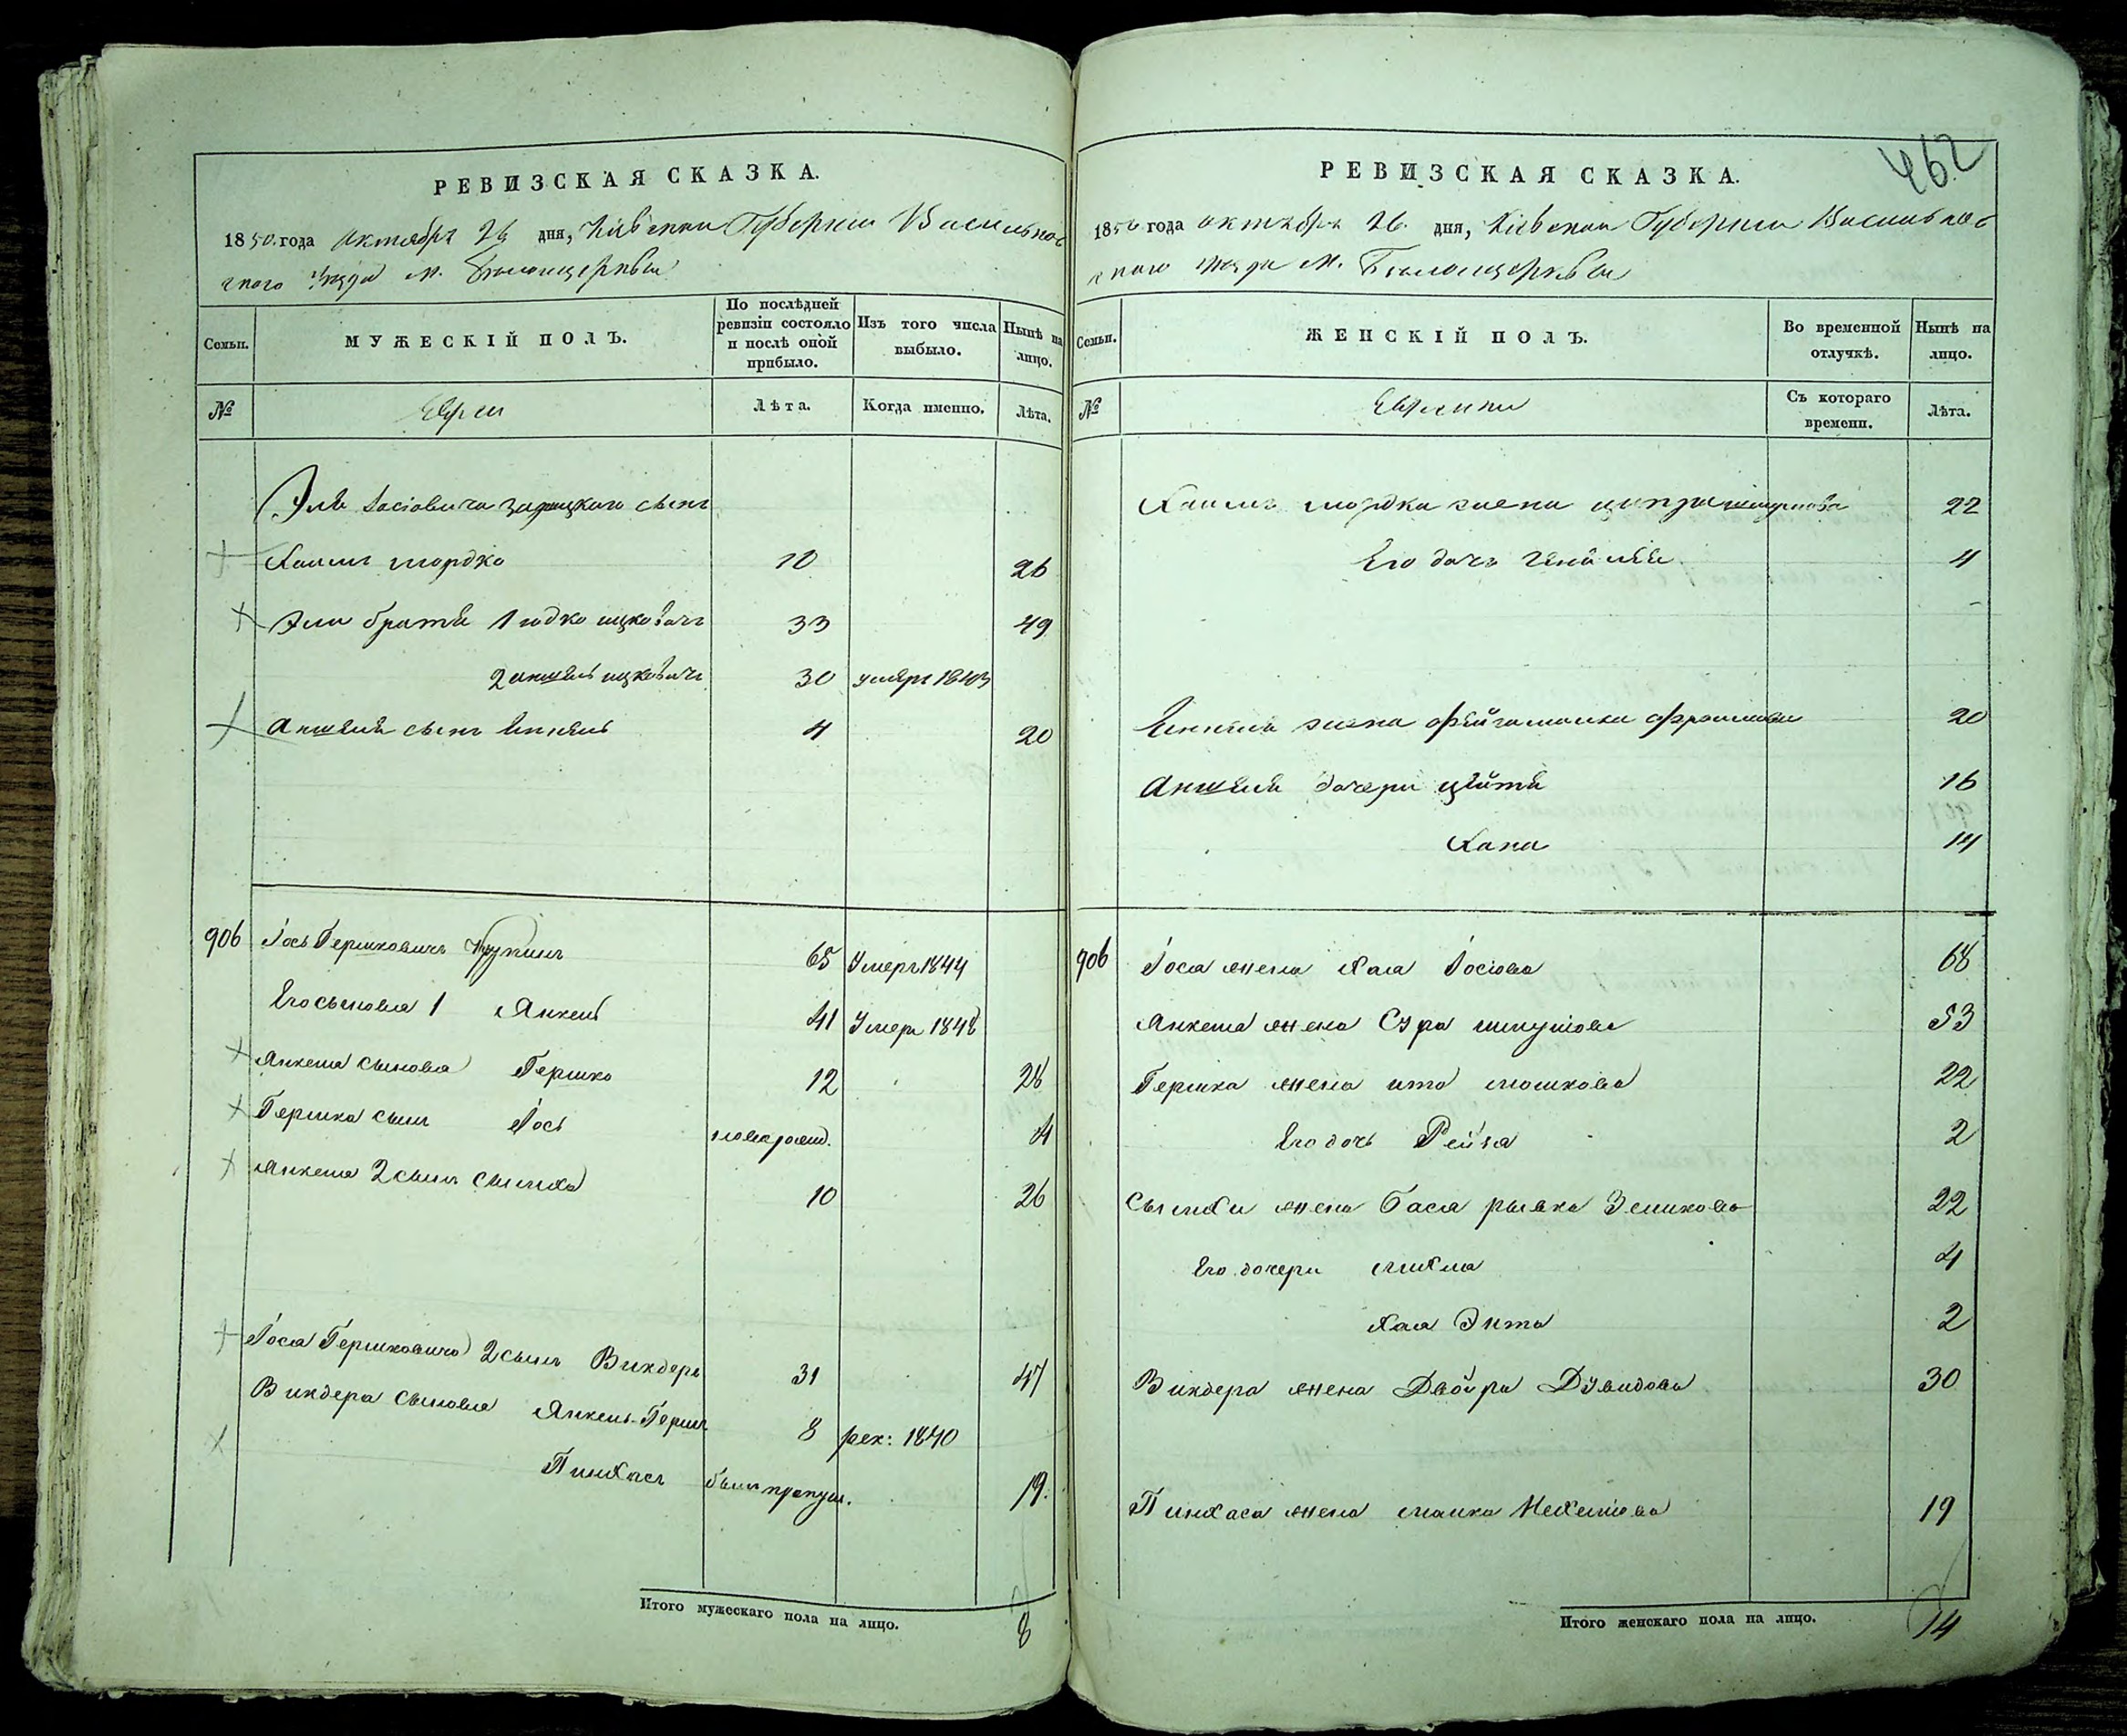 РЕВИЗСКАЯ СКАЗКА.
1850 года октября 26 дня, Кіевской Губерніи Васильков
скаго уезда м. Белоцерквы
Семьи. МУЖЕСКІЙ ПОЛЪ. По послѣдней ревизіи состояло и послѣ оной прибыло. Изъ того числа выбыло. Нынѣ на лицо.
№ Евреи Лѣта. Когда именно. Лѣта.
Эля Іосіовича сынъ
Хаимъ мордко 10 26
Эли братья 1 юдко ицковичъ 33 49
2 аншель ицковичъ 30 умеръ 1843
Аншеля сынъ 4 20
906 Іось Гершковичъ 65 Умеръ 1844
Его сыновья 1 Янкель 41 Умеръ 1848
Янкеля сыновья Гершко 12 28
Гершка сынъ Іось новорожд. 4
Янкеля 2 сынъ Сымха 10 26
Іося Гершковича 2 сынъ Виндеръ 31 47
Виндера сыновья Янкель-Гершъ 8 рек: 1840
Пинхасъ былъ пропущ. 19.
Итого мужескаго пола на лицо. 8
462
РЕВИЗСКАЯ СКАЗКА.
1850 года октября 26 дня, Кіевской Губерніи Васильков
скаго уезда м. Белоцерквы
Семьи. ЖЕНСКІЙ ПОЛЪ. Во временной отлучкѣ. Нынѣ на лицо.
№ Еврейки Съ котораго времени. Лѣта.
Хаимъ мордка жена ципра 22
Его дочь 4
жена фейга малка 20
Аншеля дочери цейтя 16
Хана 14
906 Іося жена Хая Іосіова 68
Янкеля жена Сура шмулiова 53
Гершка жена ита мошкова 22
Его дочь Рейзя 2
Сымхи жена Бася рывка Зеликова 22
Его дочери михля 4
Хая Энта 2
Виндера жена Двойра Дувидова 30
Пинхаса жена малка Нехемiова 19
Итого женскаго пола на лицо. 14